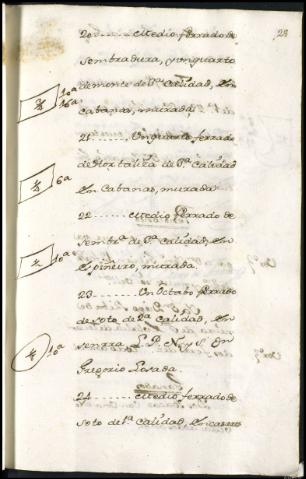 28
20....... Medio ferrado de
sembradura, y un quarto
de monte de 1ª Calidad, en
Cabanas, murada
21....... Un quarto ferrado
de ortaliza de 1ª Calidad
en Cabanas, murada
6ª
22....... Medio ferrado de
sembrª de 1ª Calidad, en
el piñeiro, murada.
10ª
23....... Un octabo ferrado
de soto de 2ª Calidad, en
senrra L. P. N. y S. Dn
Gregorio Losada.
10ª
24....... Medio ferrado de
soto de 1ª Calidad, en